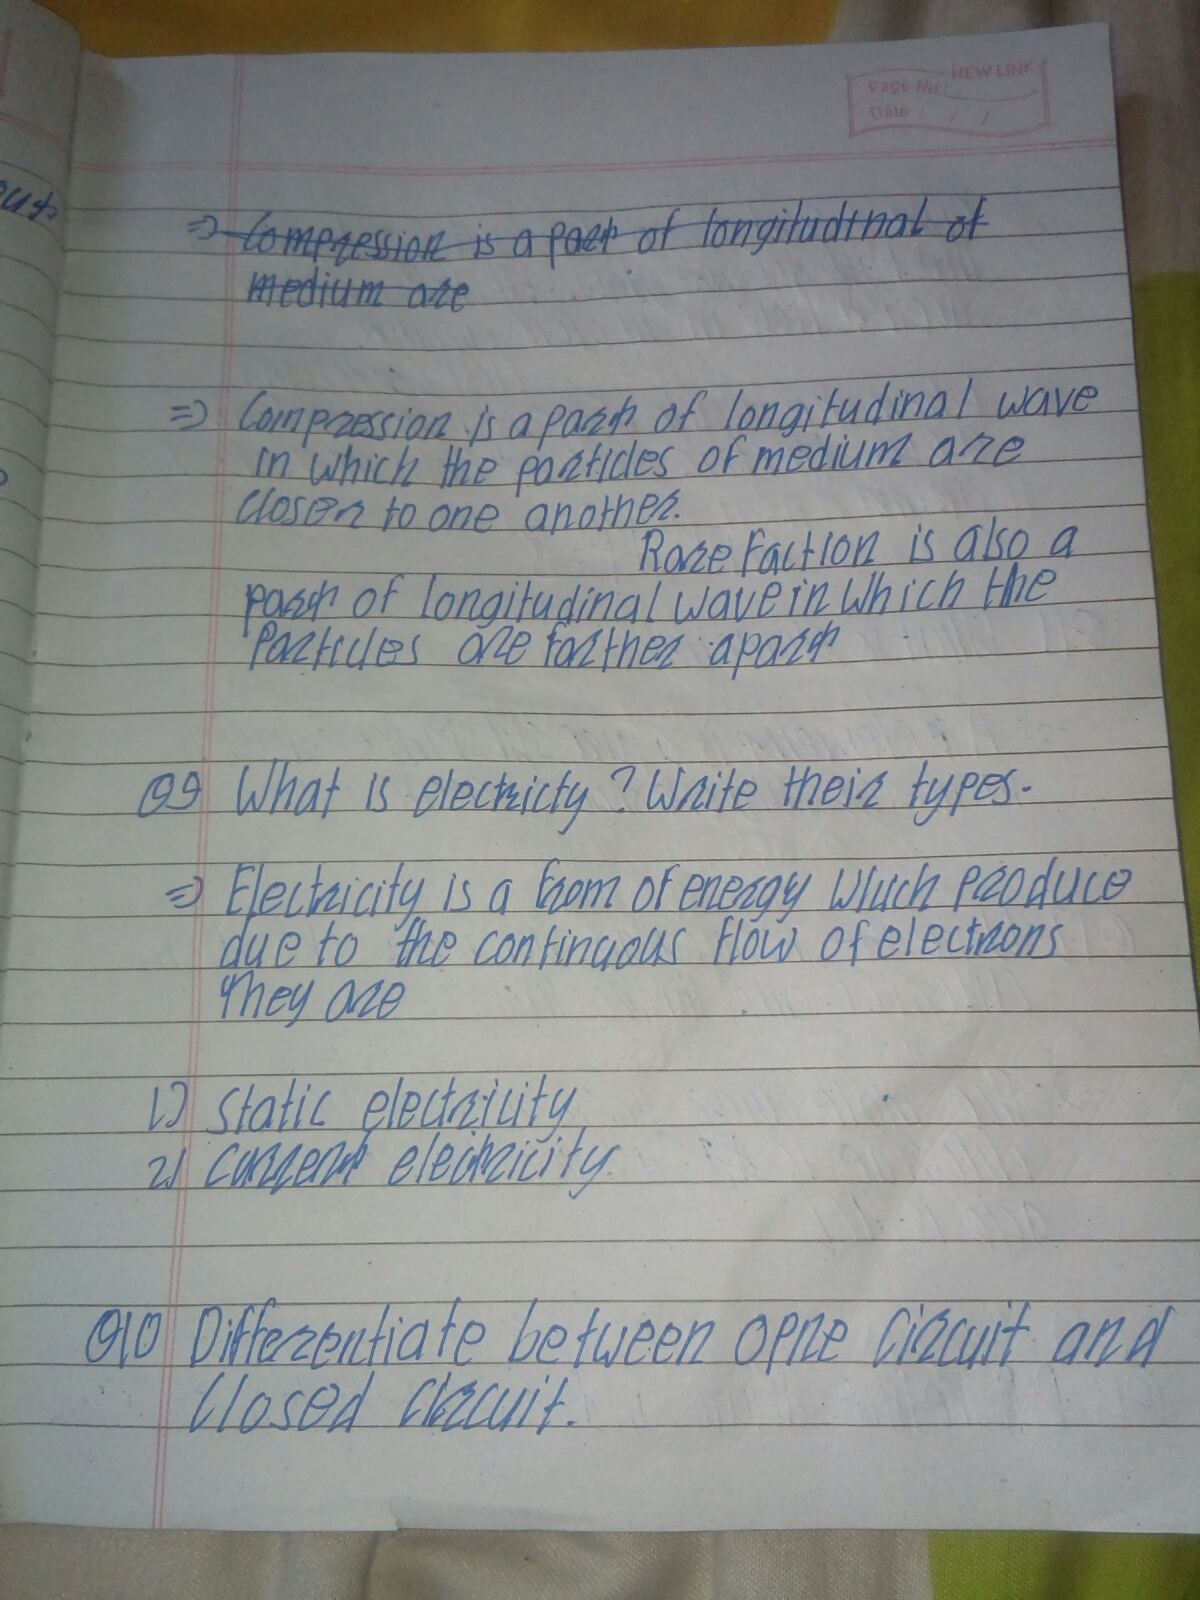 NEW LINK
Page No.
Date : / /
=) Compression is a part of longitudinal of
medium are
=) Compression is a part of longitudinal wave
in which the particles of medium are
closer to one another.
Rarefaction is also a
part of longitudinal wave in which the
Particles are farther apart
Q9 What is electricty? Write their types.
=) Electricity is a from of energy which produce
due to the continuous flow of electrons
They are
1.) static electricity
2.) current electricity
Q10 Differentiate between opne circuit and
Closed circuit.